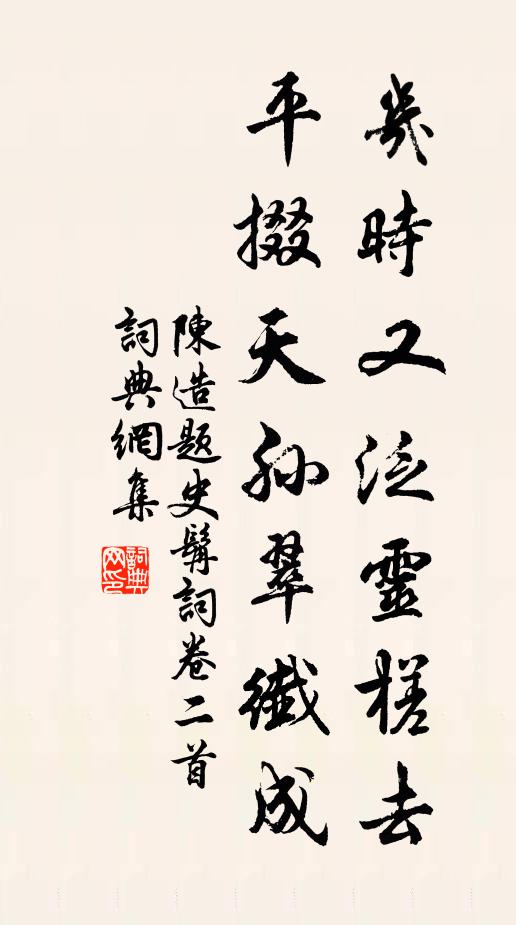 幾時又泛靈槎去
平掇天孫翠織成
陳造題史髯詞卷二首
詞典網集
詞典网印